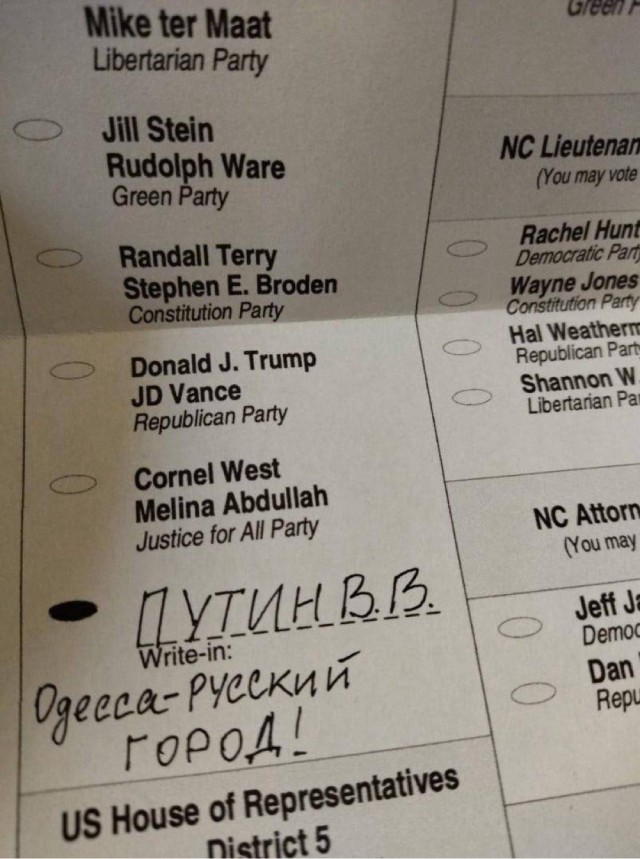 Mike ter Maat
Libertarian Party
Jill Stein
Rudolph Ware
Green Party
Randall Terry
Stephen E. Broden
Constitution Party
Donald J. Trump
JD Vance
Republican Party
Cornel West
Melina Abdullah
Justice for All Party
ПУТИН В.В.
Write-in:
Одесса-РУССКИЙ
ГОРОД!
US House of Representatives
District 5
Green
NC
(You may vote
Rachel
Democratic
Wayne Jones
Constitution Party
Hal
Republican
Shannon W
Libertarian
NC
(You may
Jeff
Dan